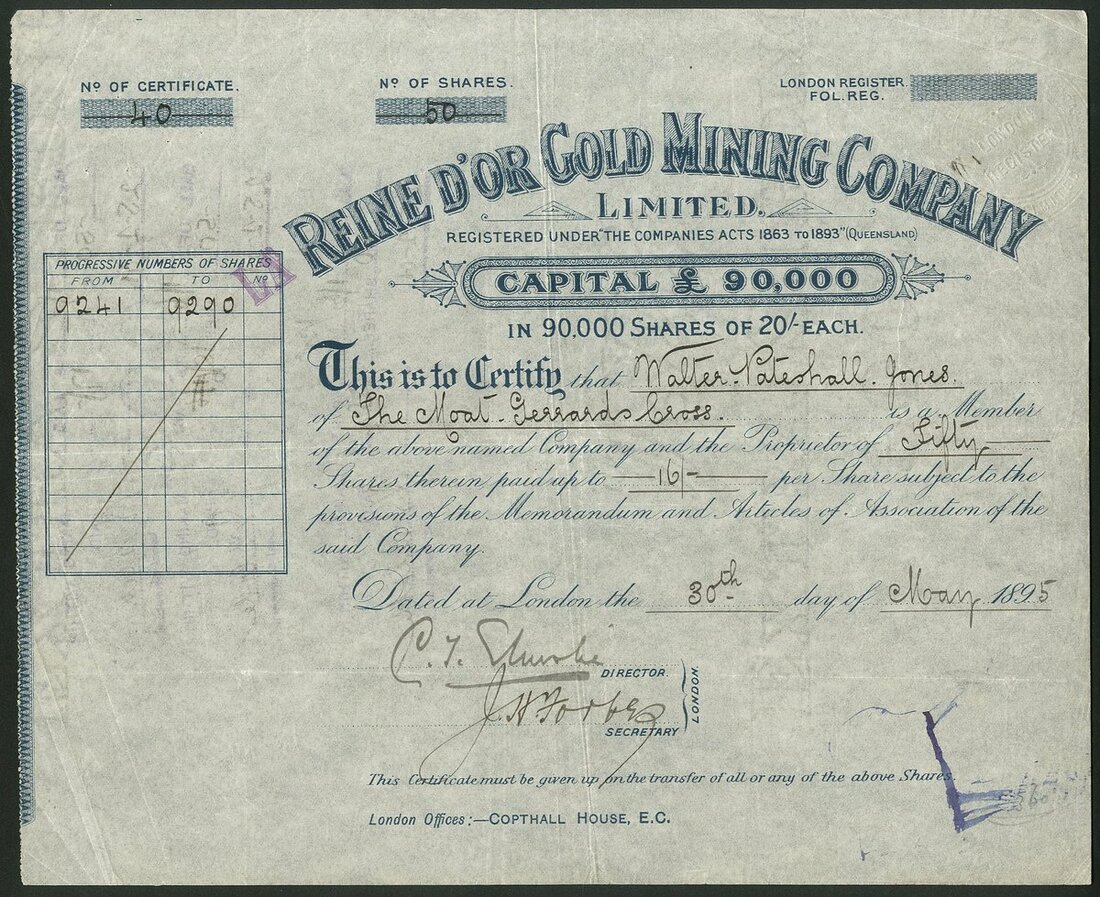 No OF CERTIFICATE.
40
No OF SHARES.
50
LONDON REGISTER
FOL. REG.
REINE D'OR GOLD MINING COMPANY
LIMITED.
REGISTERED UNDER "THE COMPANIES ACTS 1863 TO 1893" (QUEENSLAND)
CAPITAL £ 90,000
IN 90,000 SHARES OF 20/- EACH.
PROGRESSIVE NUMBERS OF SHARES
FROM TO No
9241 9290
This is to Certify that Walter Pateshall Jones.
of The Moat Gerrards Cross. is a Member
of the above named Company and the Proprietor of Fifty
Shares therein paid up to 16/- per Share subject to the
provisions of the Memorandum and Articles of Association of the
said Company.
Dated at London the 30th day of May 1895
DIRECTOR.
J. H. Forbes
SECRETARY
LONDON.
This Certificate must be given up on the transfer of all or any of the above Shares.
London Offices:—COPTHALL HOUSE, E.C.